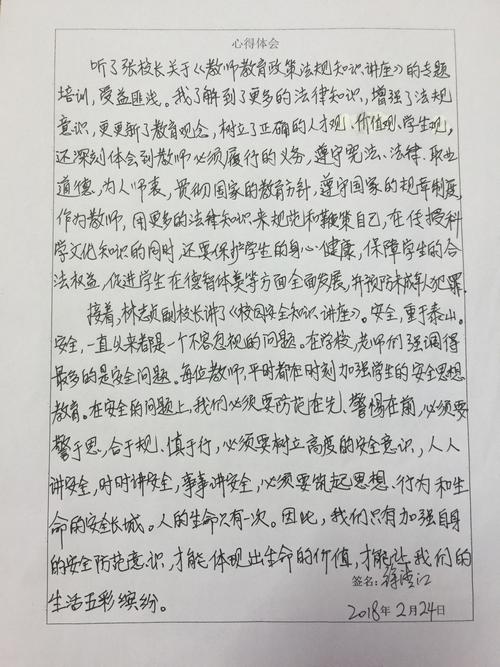 心得体会
听了张校长关于《教师教育政策法规知识讲座》的专题
培训,受益匪浅。我了解到了更多的法律知识,增强了法规
意识,更更新了教育观念,树立了正确的人才观、价值观、学生观,
还深刻体会到教师必须履行的义务,遵守宪法、法律、职业
道德,为人师表,贯彻国家的教育方针,遵守国家的规章制度,
作为教师,用更多的法律知识来规范和鞭策自己,在传授科
学文化知识的同时,还要保护学生的身心健康,保障学生的合
法权益,促进学生在德智体美等方面全面发展,并预防未成年人犯罪.
接着,林志贞副校长讲了《校园安全知识讲座》。安全,重于泰山。
安全,一直以来都是一个不容忽视的问题。在学校,老师们强调得
最多的是安全问题。每位教师,平时都在时刻加强学生的安全思想
教育。在安全的问题上,我们必须要防范在先、警惕在前,必须要
警于思,合于规、慎于行,必须要树立高度的安全意识,人人
讲安全,时时讲安全,事事讲安全,必须要筑起思想、行为和生
命的安全长城。人的生命只有一次。因此,我们只有加强自身
的安全防范意识,才能体现出生命的价值,才能让我们的
生活五彩缤纷。
签名:徐
2018年2月24日